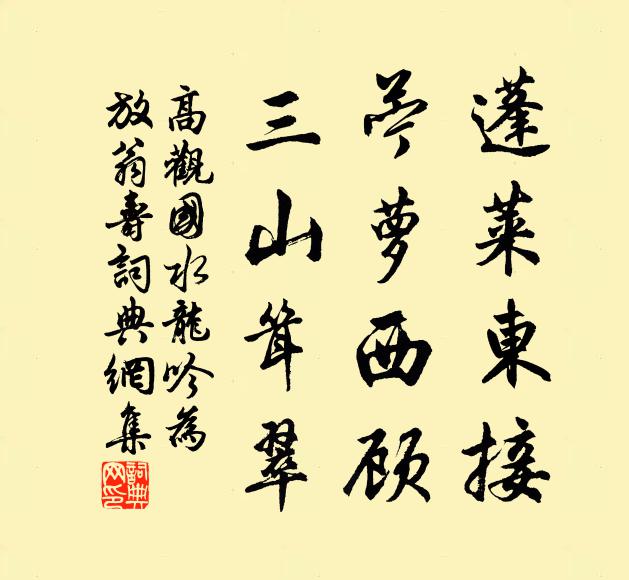 蓬萊東接
苧萝西顾
三山耸翠
高觀國水龍吟為
放翁壽詞典網集
詞典
网印